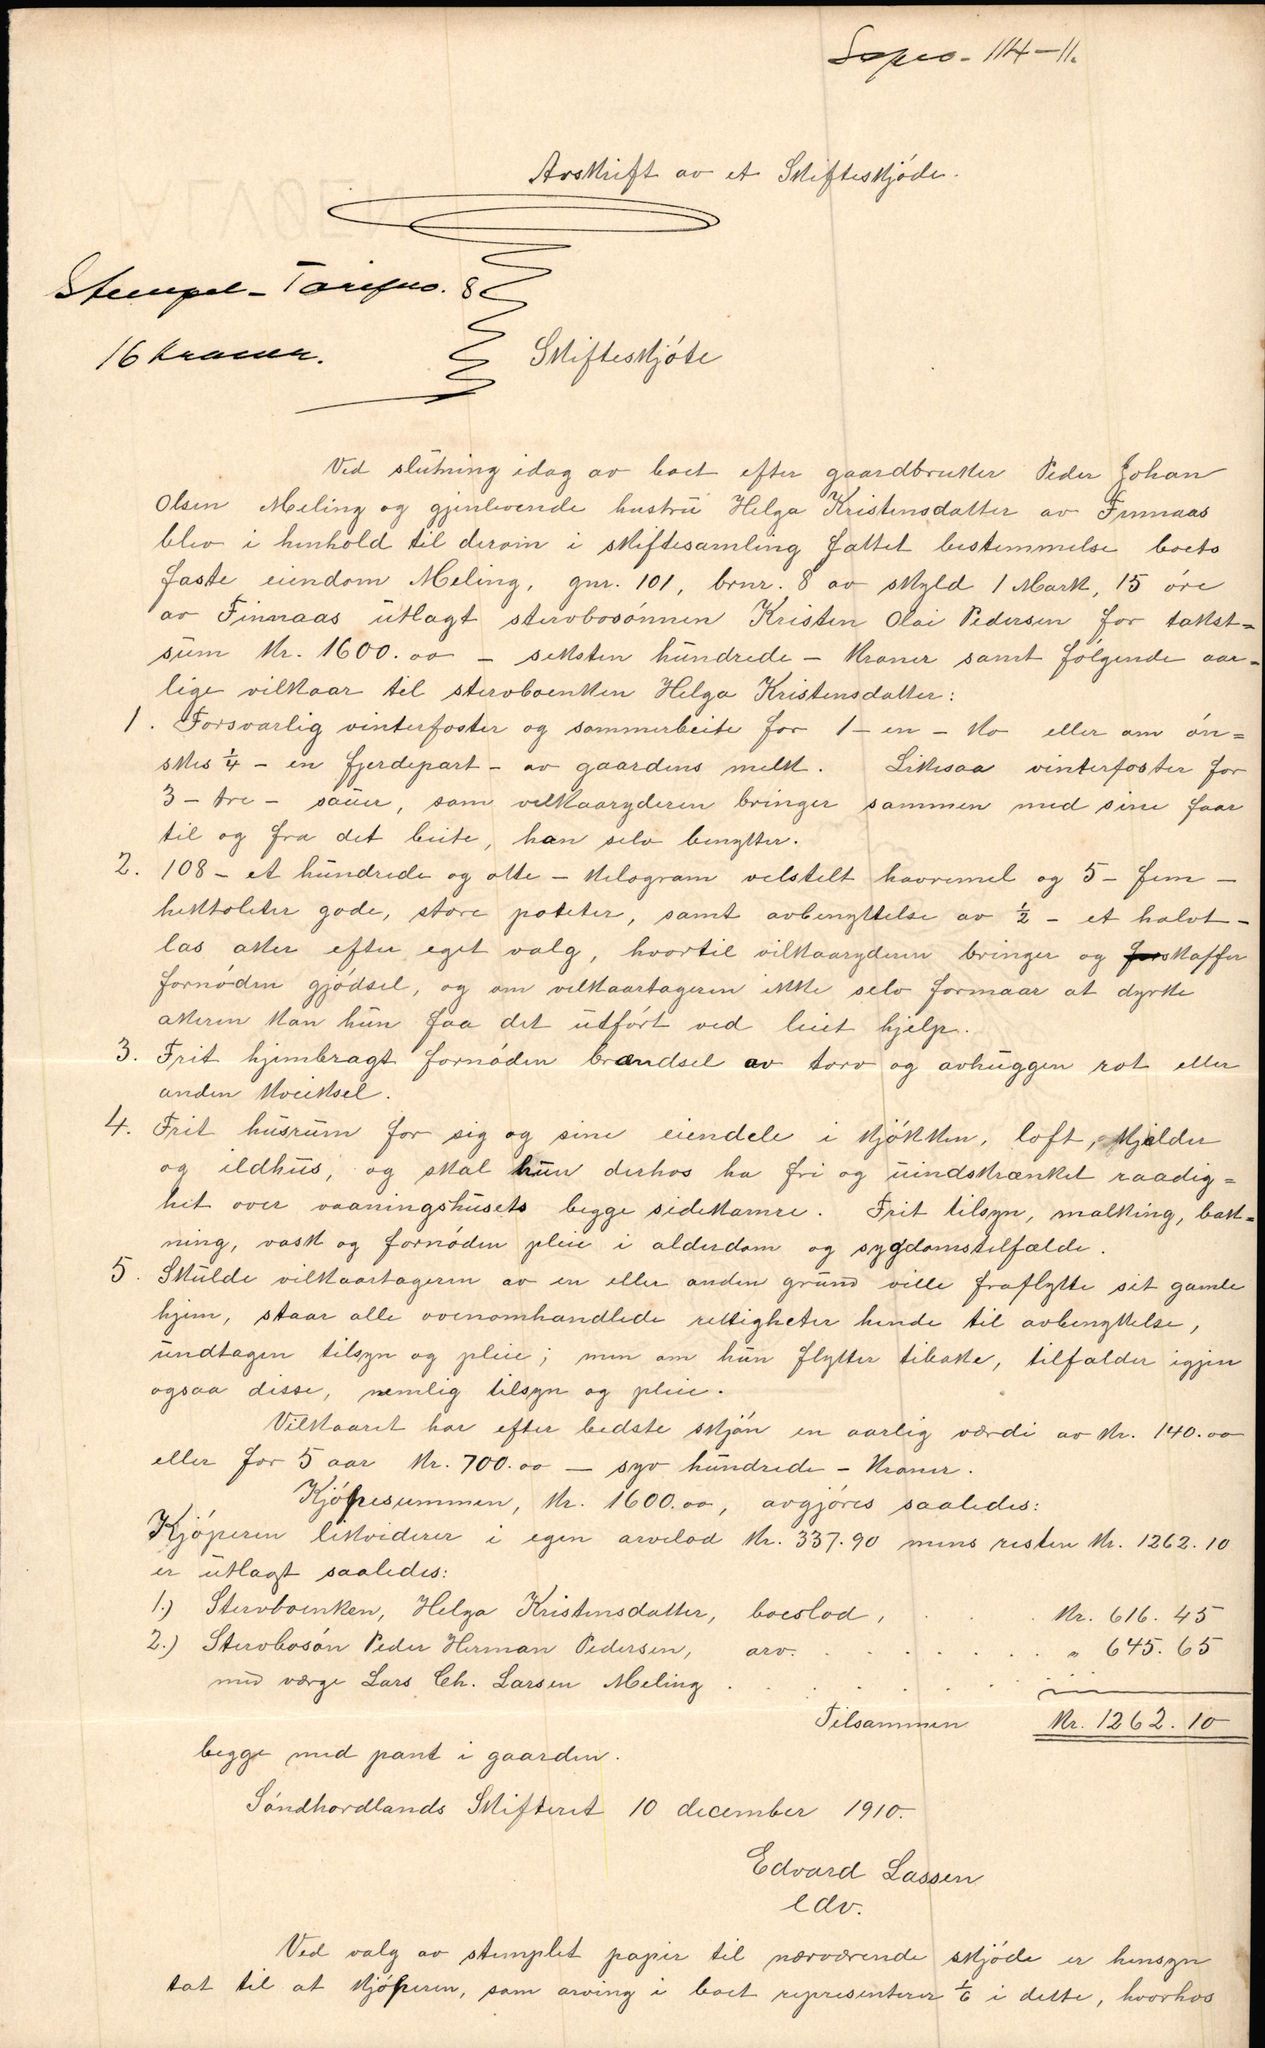 114-11.
Avskrift av et Skifteskjöde.
Stempel-Tarifno. 8
16 kroner.
Skifteskjöte
Ved slutning idag av boet efter gaardbruker Peder Johan
Olsen Meling og gjenlevende hustru Helga Kristensdatter av Finnaas
blev i henhold til derom i skiftesamling fattet bestemmelse boets
faste eiendom Meling, gnr. 101, brnr. 8 av skyld 1 Mark, 15 öre
av Finnaas utlagt stervbosönnen Kristen Olai Pedersen for takst=
sum kr. 1600.00 - seksten hundrede - kroner samt fölgende aar=
lige vilkaar til stervboenken Helga Kristensdatter:
1. Forsvarlig vinterfoster og sommerbeite for 1 - en - ko eller om ön=
skes 1/4 - en fjerdepart - av gaardens melk. Likesaa vinterfoster for
3 - tre - sauer, som vilkaaryderen bringer sammen med sine faar
til og fra det beite, han selv benytter.
2. 108 - et hundrede og otte - kilogram velstelt havremel og 5 - fem -
hektoliter gode, store poteter, samt avbenyttelse av 1/2 - et halvt -
las aker efter eget valg, hvortil vilkaaryderen bringer og forskaffer
fornöden gjödsel, og om vilkaartageren ikke selv formaar at dyrke
akeren kan hun faa det utfört ved leiet hjelp.
3. Frit hjembragt fornöden brændsel av torv og avhuggen rot eller
anden kveiksel.
4. Frit husrum for sig og sine eiendele i kjökken, loft, kjelder
og ildhus, og skal hun derhos ha fri og uindskrænket raadig=
het over vaaningshusets begge sidekamre. Frit tilsyn, malking, bak=
ning, vask og fornöden pleie i alderdom og sygdomstilfælde.
5. Skulde vilkaartageren av en eller anden grund ville fraflytte sit gamle
hjem, staar alle ovenomhandlede rettigheter hende til avbenyttelse,
undtagen tilsyn og pleie; men om hun flytter tilbake, tilfalder igjen
ogsaa disse, nemlig tilsyn og pleie.
Vilkaaret har efter bedste skjön en aarlig værdi av kr. 140.00
eller for 5 aar kr. 700.00 - syv hundrede - kroner.
Kjöpesummen, kr. 1600.00, avgjöres saaledes:
Kjöperen likviderer i egen arvelod kr. 337.90 mens resten kr. 1262.10
er utlagt saaledes:
1.) Stervboenken, Helga Kristensdatter, boeslod, . . . kr. 616.45
2.) Stervbosön Peder Herman Pedersen, arv. . . . . . . " 645.65
med værge Lars Ch. Larsen Meling . . . . . .
Tilsammen kr. 1262.10
begge med pant i gaarden.
Söndhordlands Skifteret 10 december 1910.
Edvard Lassen
edv.
Ved valg av stemplet papir til nærværende skjöde er hensyn
tat til at kjöperen, som arving i boet representerer 1/6 i dette, hvorhos